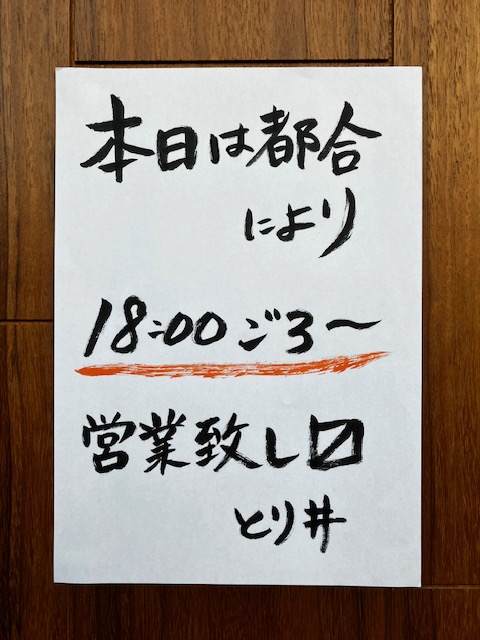 本日は都合
により
18:00ごろ〜
営業致し〼
とり井